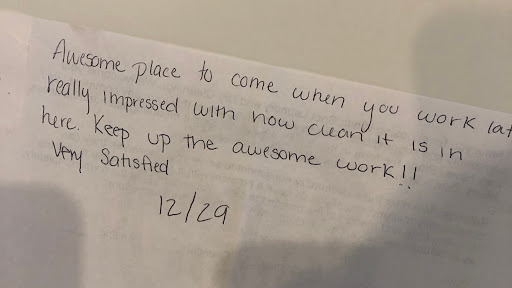 Awesome place to come when you work lat
really impressed with how clean it is in
here. Keep up the awesome work!!
Very Satisfied
12/29